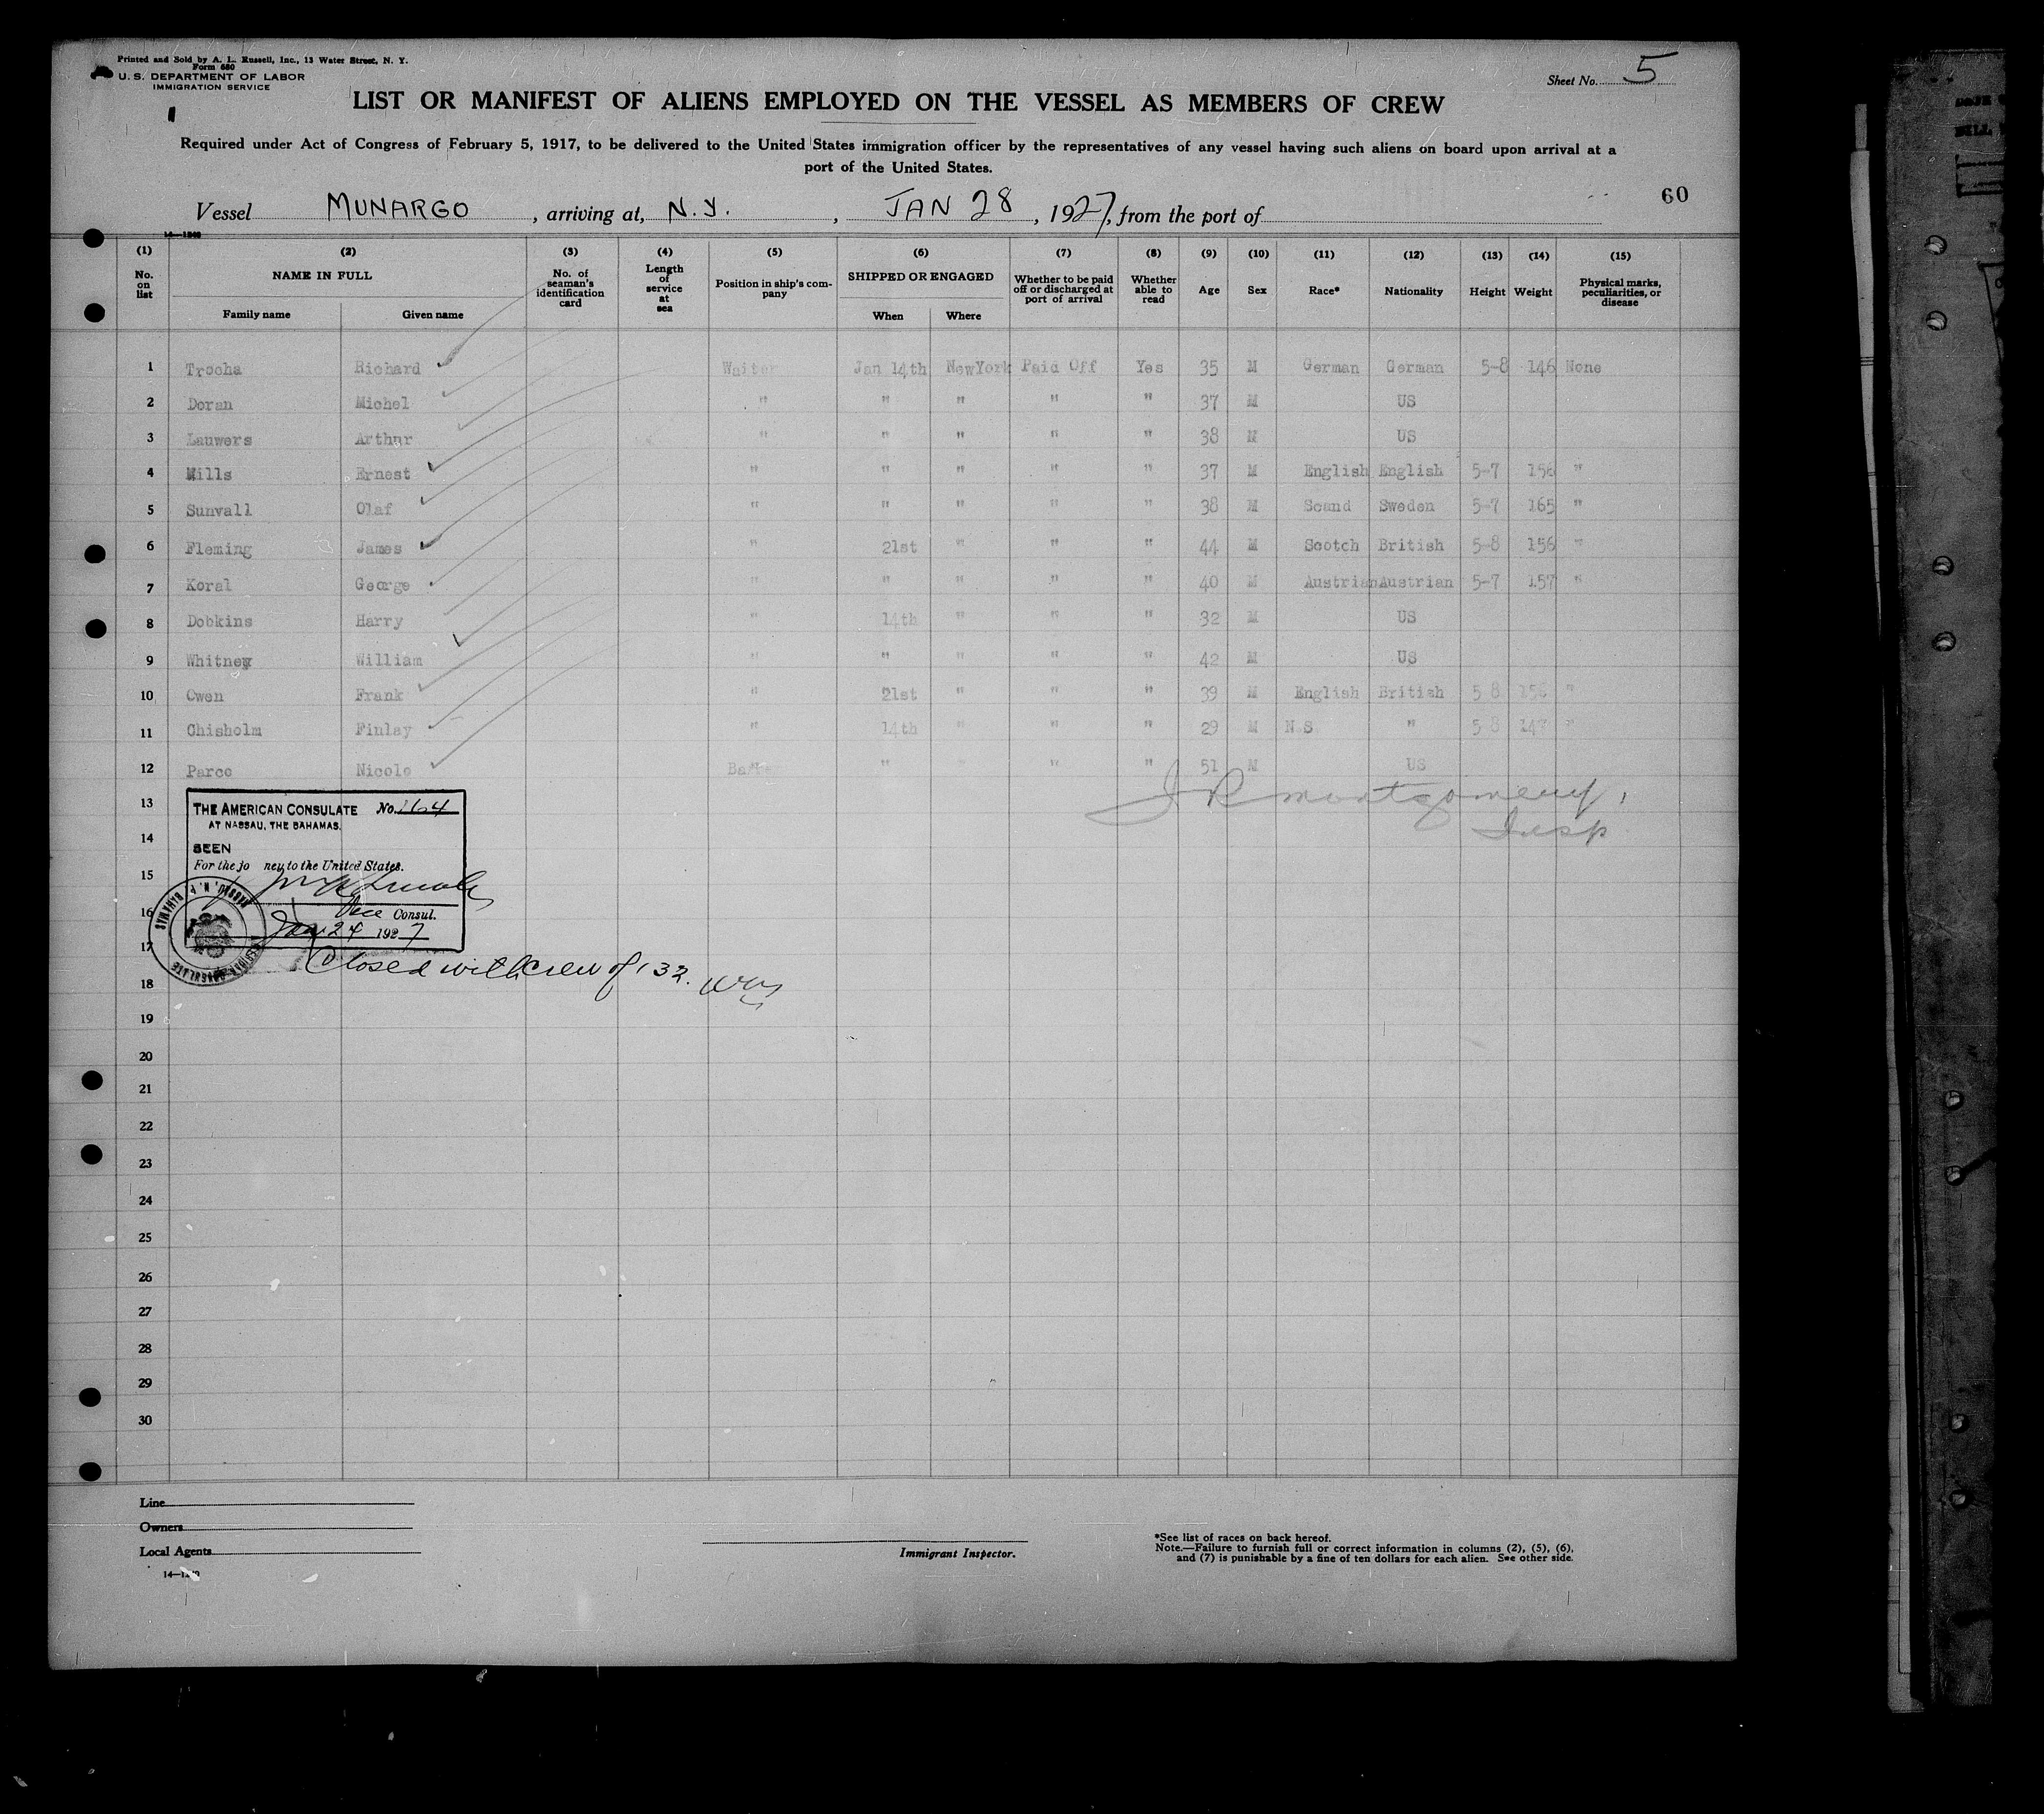 Printed and Sold by A. L. Russell, Inc., 13 Water Street, N. Y.
Form 680
U. S. DEPARTMENT OF LABOR
IMMIGRATION SERVICE
Sheet No. 5
LIST OR MANIFEST OF ALIENS EMPLOYED ON THE VESSEL AS MEMBERS OF CREW
Required under Act of Congress of February 5, 1917, to be delivered to the United States immigration officer by the representatives of any vessel having such aliens on board upon arrival at a
port of the United States.
60
Vessel MUNARGO, arriving at, N.Y., JAN 28, 1927, from the port of
(1) No. on list
(2) NAME IN FULL Family name Given name
(3) No. of seaman's identification card
(4) Length of service at sea
(5) Position in ship's company
(6) SHIPPED OR ENGAGED When Where
(7) Whether to be paid off or discharged at port of arrival
(8) Whether able to read
(9) Age
(10) Sex
(11) Race*
(12) Nationality
(13) Height
(14) Weight
(15) Physical marks, peculiarities, or disease
1 Trocha Richard Waiter Jan 14th NewYork Paid Off Yes 35 M German German 5-8 146 None
2 Doran Michel " " " " " 37 M US
3 Lauwers Arthur " " " " " 38 M US
4 Mills Ernest " " " " " 37 M English English 5-7 156 "
5 Sunvall Olaf " " " " " 38 M Scand Sweden 5-7 165 "
6 Fleming James " 21st " " " 44 M Scotch British 5-8 156 "
7 Koral George " " " " " 40 M Austrian Austrian 5-7 157 "
8 Dobkins Harry " 14th " " " 32 M US
9 Whitney William " " " " " 42 M US
10 Owen Frank " 21st " " " 39 M English British 5 8 156 "
11 Chisholm Finlay " 14th " " " 29 M N.S " 5 8 147 "
12 Parco Nicole " " " " 51 M US
J R Montgomery,
Insp
13
14
15
16
17
18
19
20
21
22
23
24
25
26
27
28
29
30
THE AMERICAN CONSULATE No. 164
AT NASSAU, THE BAHAMAS.
SEEN
For the jo ney to the United States.
Vice Consul.
Jan. 24 1927
Closed with crew of 132.
Line
Owners
Local Agents
Immigrant Inspector.
*See list of races on back hereof.
Note.—Failure to furnish full or correct information in columns (2), (5), (6),
and (7) is punishable by a fine of ten dollars for each alien. See other side.